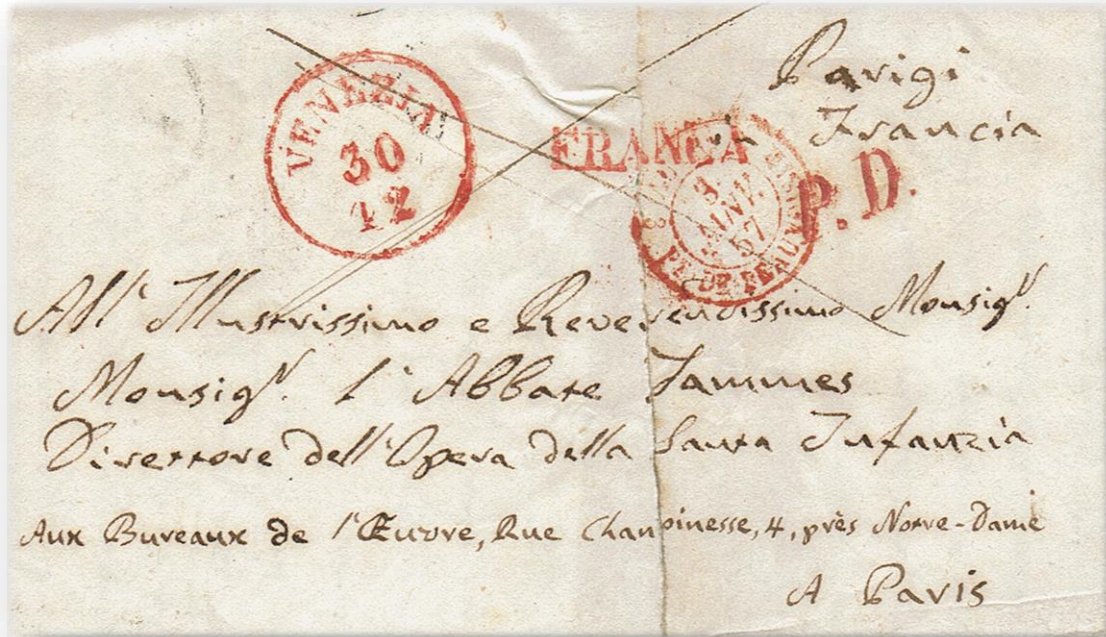 Parigi
Francia
VENEZIA
30
12
FRANCA
3
JANV.
57
PT. DE BEAUVOISIN
P.D.
All' Illustrissimo e Reverendissimo Monsigr.
Monsigr. l'Abbate Jammes
Direttore dell'Opera della Santa Infanzia
Aux Bureaux de l'Œuvre, Rue Chanoinesse, 4, près Notre-Dame
A Paris